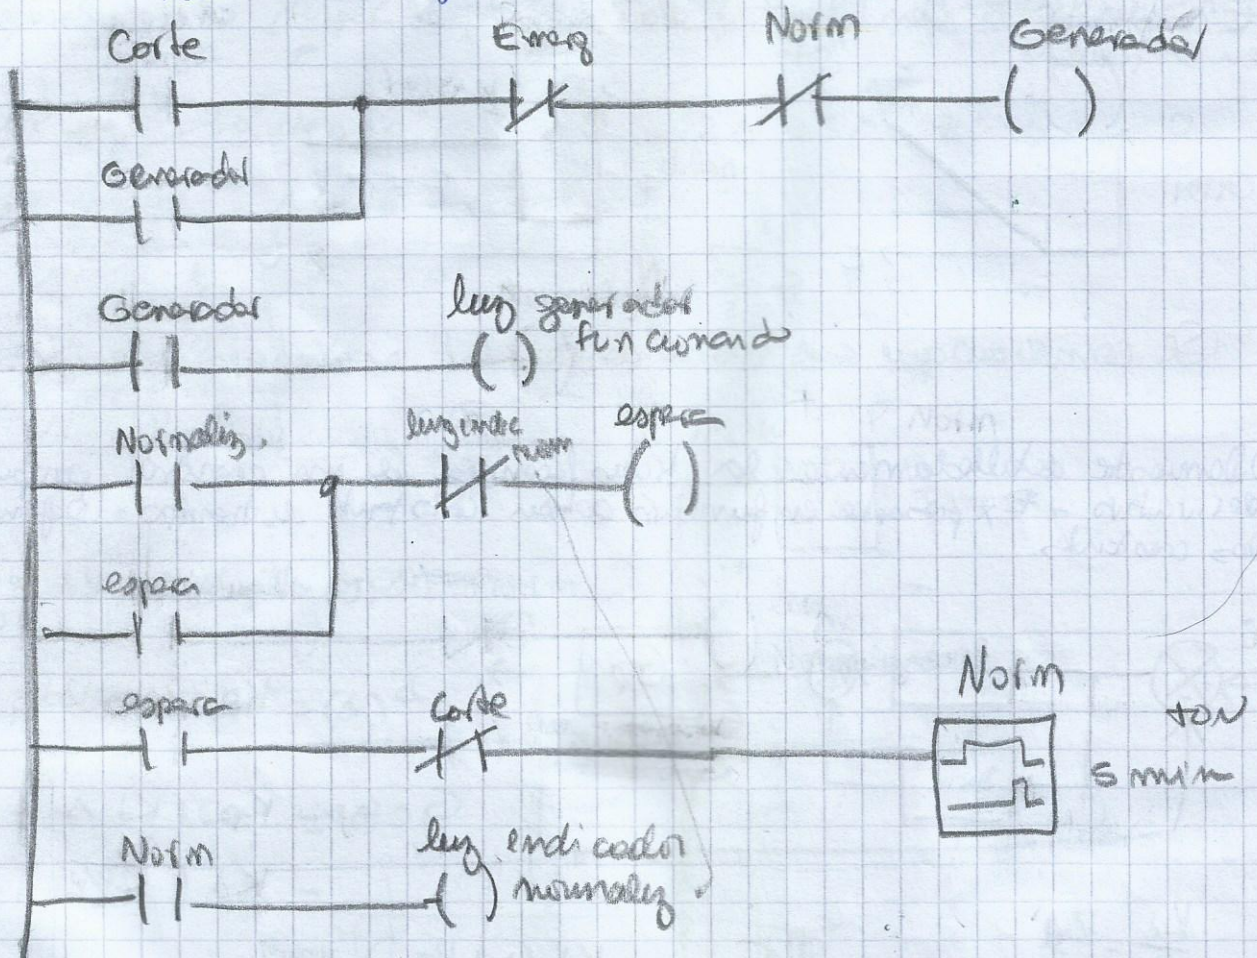 Corte Emerg Norm Generador
Generador
Generador luz generador
funcionando
Normaliz. luz indic espera
norm
espera
espera Corte Norm TON
5 min
Norm luz indicador
normaliz